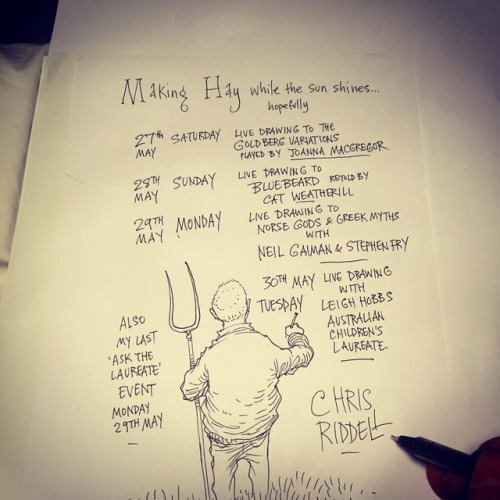 Making Hay while the sun shines...
hopefully
27TH MAY SATURDAY
LIVE DRAWING TO THE
GOLDBERG VARIATIONS
PLAYED BY JOANNA MACGREGOR
28TH MAY SUNDAY
LIVE DRAWING TO
BLUEBEARD RETOLD BY
CAT WEATHERILL
29TH MAY MONDAY
LIVE DRAWING TO
NORSE GODS & GREEK MYTHS
WITH
NEIL GAIMAN & STEPHEN FRY
30TH MAY
TUESDAY
LIVE DRAWING
WITH
LEIGH HOBBS
AUSTRALIAN
CHILDREN'S
LAUREATE.
ALSO
MY LAST
'ASK THE
LAUREATE'
EVENT
MONDAY
29TH MAY
CHRIS
RIDDELL